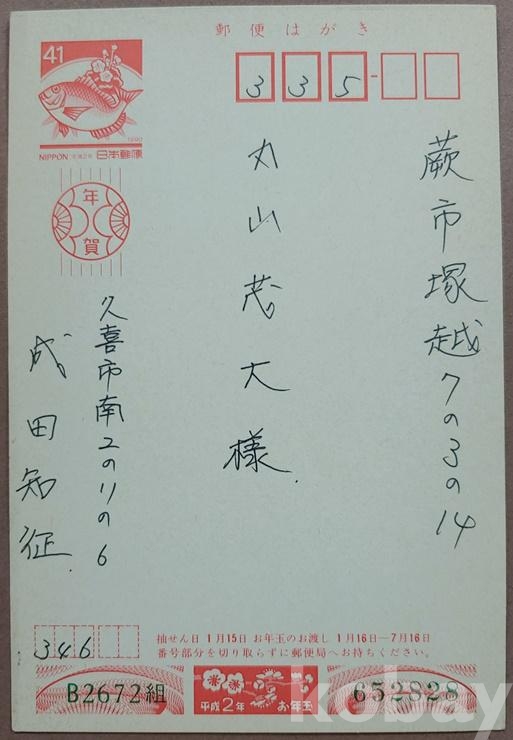 郵便はがき
41
1990
NIPPON 平成2年 日本郵便
335-
年賀
蕨市塚越7の3の14
丸山茂大様
久喜市南2の11の6
成田知征
346
抽せん日 1月15日 お年玉のお渡し 1月16日―7月16日
番号部分を切り取らずに郵便局へお持ちください。
B2672組
平成2年 お年玉
652828
kobay